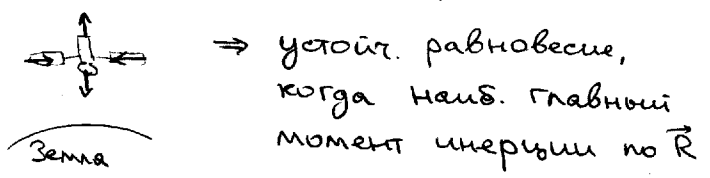 ⇒ устойч. равновесие,
когда наиб. главный
момент инерции по R⃗
Земля